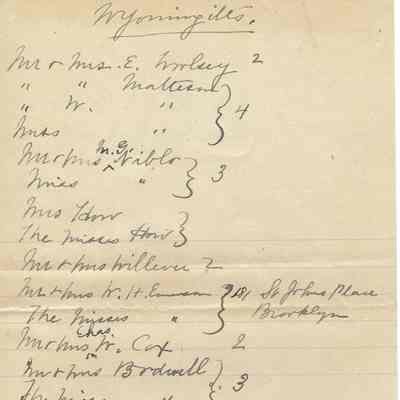 Wyomingites.
Mr + Mrs. E. Wolsey 2
" " Matteson
" W. " } 4
Miss "
Mr + Mrs M.G. Niblo } 3
Miss "
Mrs How
The Misses How }
Mr + Mrs Willever 2
Mr + Mrs W. H. Emerson 181 St Johns Place
The Misses " Brooklyn
Mr + Mrs Chas. W. Cox 2
Mr + Mrs Bodwell } 3
The Misses "